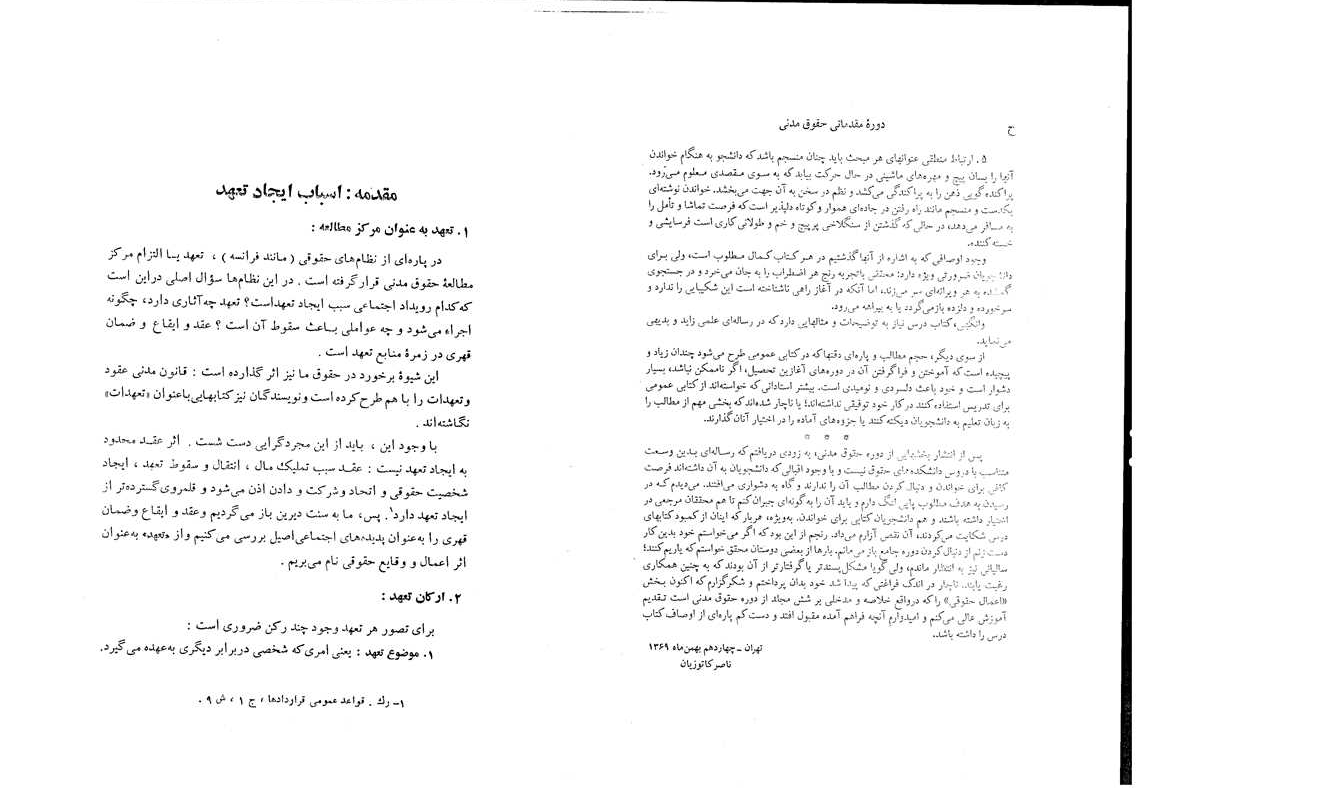 ح
دورهٔ مقدماتی حقوق مدنی
۵. ارتباط منطقی عنوانهای هر مبحث باید چنان منسجم باشد که دانشجو به هنگام خواندن
آنها را بسان پیچ و مهره‌های ماشینی در حال حرکت بیابد که به سوی مقصدی معلوم می‌رود.
پراکنده‌گویی ذهن را به پراکندگی می‌کشد و نظم در سخن به آن جهت می‌بخشد. خواندن نوشته‌ای
یکدست و منسجم مانند راه رفتن در جاده‌ای هموار و کوتاه دلپذیر است که فرصت تماشا و تأمل را
به مسافر می‌دهد، در حالی که گذشتن از سنگلاخی پرپیچ و خم و طولانی کاری است فرسایشی و
خسته کننده.
وجود اوصافی که به اشاره از آنها گذشتیم در هر کتاب کمال مطلوب است، ولی برای
دانشجویان ضرورتی ویژه دارد: محققی باتجربه رنج هر اضطراب را به جان می‌خرد و در جستجوی
گمشده به هر ویرانه‌ای سر می‌زند، اما آنکه در آغاز راهی ناشناخته است این شکیبایی را ندارد و
سرخورده و دلزده بازمی‌گردد یا به بیراهه می‌رود.
وانگهی، کتاب درس نیاز به توضیحات و مثالهایی دارد که در رساله‌ای علمی زاید و بدیهی
می‌نماید.
از سوی دیگر، حجم مطالب و پاره‌ای دقتها که در کتابی عمومی طرح می‌شود چندان زیاد و
پیچیده است که آموختن و فراگرفتن آن در دوره‌های آغازین تحصیل، اگر ناممکن نباشد، بسیار
دشوار است و خود باعث دلسردی و نومیدی است. بیشتر استادانی که خواسته‌اند از کتابی عمومی
برای تدریس استفاده کنند در کار خود توفیقی نداشته‌اند؛ یا ناچار شده‌اند که بخشی مهم از مطالب را
به زبان تعلیم به دانشجویان دیکته کنند یا جزوه‌های آماده را در اختیار آنان گذارند.
* * *
پس از انتشار بخشهایی از دوره حقوق مدنی، به زودی دریافتم که رساله‌ای بدین وسعت
متناسب با دروس دانشکده‌های حقوق نیست و با وجود اقبالی که دانشجویان به آن داشته‌اند فرصت
کافی برای خواندن و دنبال کردن مطالب آن را ندارند و گاه به دشواری می‌افتند. می‌دیدم که در
رسیدن به هدف مطلوب پایی لنگ دارم و باید آن را به گونه‌ای جبران کنم تا هم محققان مرجعی در
اختیار داشته باشند و هم دانشجویان کتابی برای خواندن. به‌ویژه، هربار که اینان از کمبود کتابهای
درسی شکایت می‌کردند، آن نقص آزارم می‌داد. رنجم از این بود که اگر می‌خواستم خود بدین کار
دست زنم از دنبال کردن دوره جامع باز می‌مانم. بارها از بعضی دوستان محقق خواستم که یاریم کنند؛
سالیانی نیز به انتظار ماندم، ولی گویا مشکل‌پسندتر یا گرفتارتر از آن بودند که به چنین همکاری
رغبت یابند. ناچار در اندک فراغتی که پیدا شد خود بدان پرداختم و شکرگزارم که اکنون بخش
«اعمال حقوقی» را که درواقع خلاصه و مدخلی بر شش مجلد از دوره حقوق مدنی است تقدیم
آموزش عالی می‌کنم و امیدوارم آنچه فراهم آمده مقبول افتد و دست کم پاره‌ای از اوصاف کتاب
درس را داشته باشد.
تهران ـ چهاردهم بهمن‌ماه ۱۳۶۹
ناصر کاتوزیان
مقدمه : اسباب ایجاد تعهد
۱. تعهد به عنوان مرکز مطالعه :
در پاره‌ای از نظام‌های حقوقی (مانند فرانسه) ، تعهد یا التزام مرکز
مطالعهٔ حقوق مدنی قرار گرفته است . در این نظام‌ها سؤال اصلی در این است
که کدام رویداد اجتماعی سبب ایجاد تعهد است؟ تعهد چه آثاری دارد، چگونه
اجراء می‌شود و چه عواملی باعث سقوط آن است ؟ عقد و ایقاع و ضمان
قهری در زمرهٔ منابع تعهد است .
این شیوهٔ برخورد در حقوق ما نیز اثر گذارده است : قانون مدنی عقود
و تعهدات را با هم طرح کرده است و نویسندگان نیز کتابهایی با عنوان «تعهدات»
نگاشته‌اند .
با وجود این ، باید از این مجردگرایی دست شست . اثر عقد محدود
به ایجاد تعهد نیست : عقد سبب تملیک مال ، انتقال و سقوط تعهد ، ایجاد
شخصیت حقوقی و اتحاد و شرکت و دادن اذن می‌شود و قلمروی گسترده‌تر از
ایجاد تعهد دارد۱. پس، ما به سنت دیرین باز می‌گردیم و عقد و ایقاع و ضمان
قهری را به‌عنوان پدیده‌های اجتماعی اصیل بررسی می‌کنیم و از «تعهد» به‌عنوان
اثر اعمال و وقایع حقوقی نام می‌بریم .
۲. ارکان تعهد :
برای تصور هر تعهد وجود چند رکن ضروری است :
۱. موضوع تعهد : یعنی امری که شخصی در برابر دیگری به‌عهده می‌گیرد.
۱ـ رك . قواعد عمومی قراردادها ، ج ۱ ، ش ۹ .